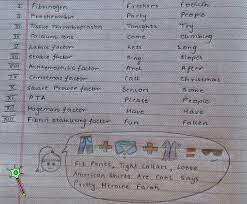 I Fibrinogen Freshers Foolish
II Prothrombin Party People
III Tissue Thromboplastin Tonight Try
IV Calcium ions Come Climbing
V Labile factor Lets Long
VII Stable factor Sing Slopes
VIII Antihemophilic factor And After
IX Christmas factor Call Christmas
X Stuart Prower factor Seniors Some
XI PTA Please People
XII Hageman factor Have Have
XIII Fibrin stabilising factor Fun Fallen
Fit Pants, Tight Collars, Loose
American Shirts Are Cool Says
Pretty Heroine Farah